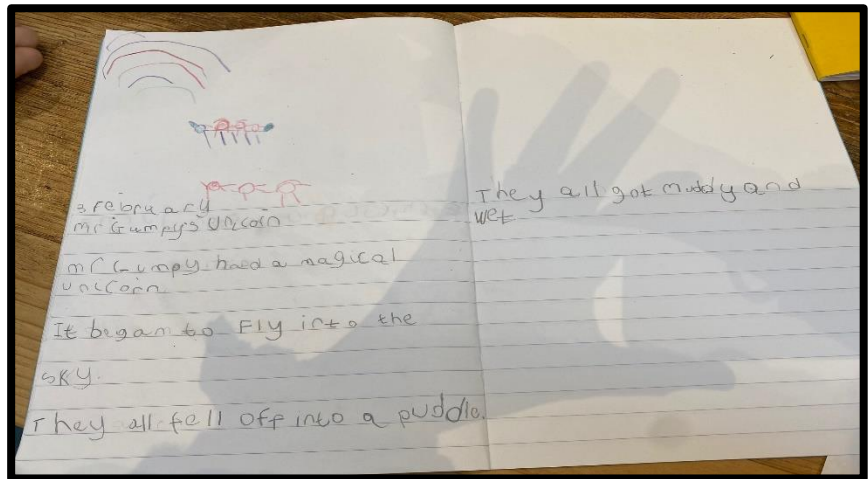 3 February
mr Gumpy's Unicorn
mr Gumpy haed a magical
unicorn
It began to Fly into the
sky.
They all fell off into a puddle.
They all got muddy and
wet